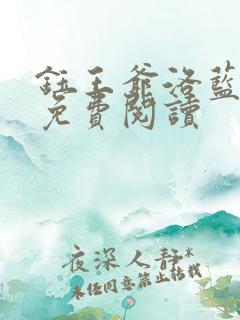 鈺王爺洛藍
免費閱讀
夜深人靜*
未经同意禁止转载